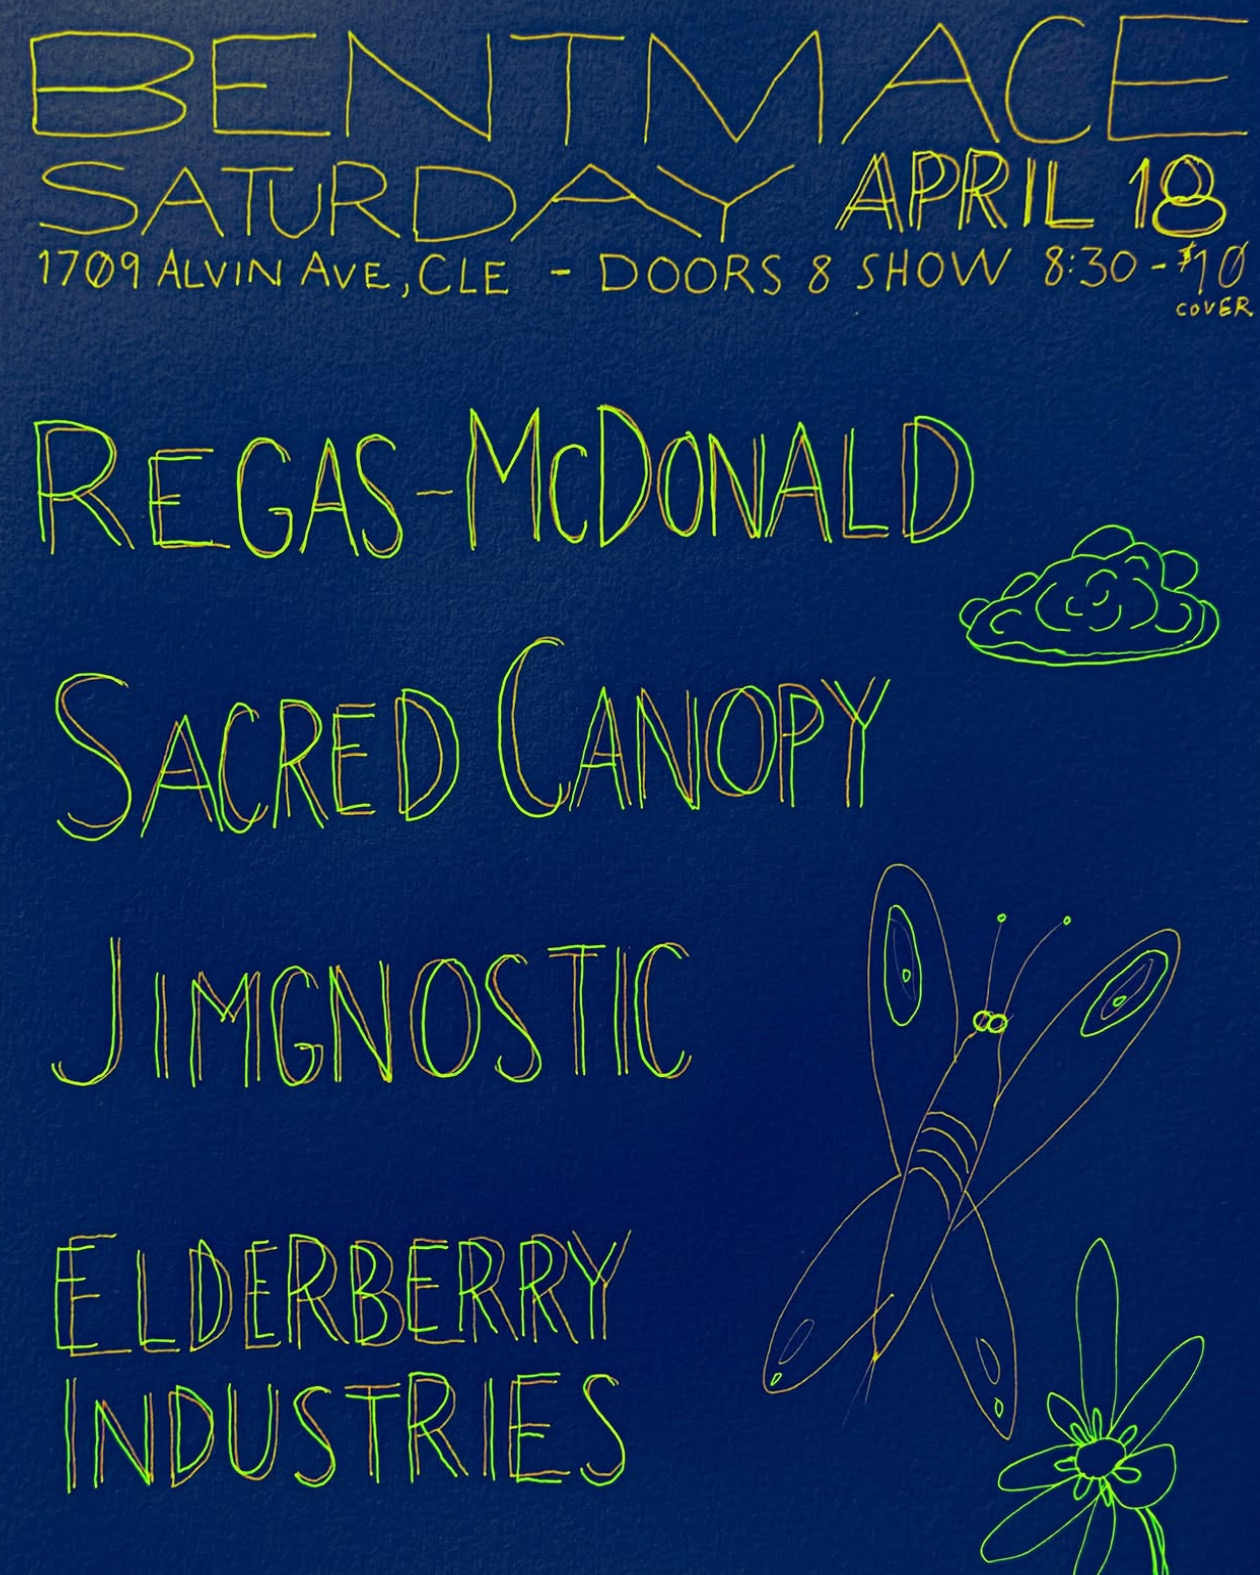 BENTMACE
SATURDAY APRIL 18
1709 ALVIN AVE, CLE - DOORS 8 SHOW 8:30 - $10
COVER
REGAS-McDONALD
SACRED CANOPY
JIMGNOSTIC
ELDERBERRY
INDUSTRIES